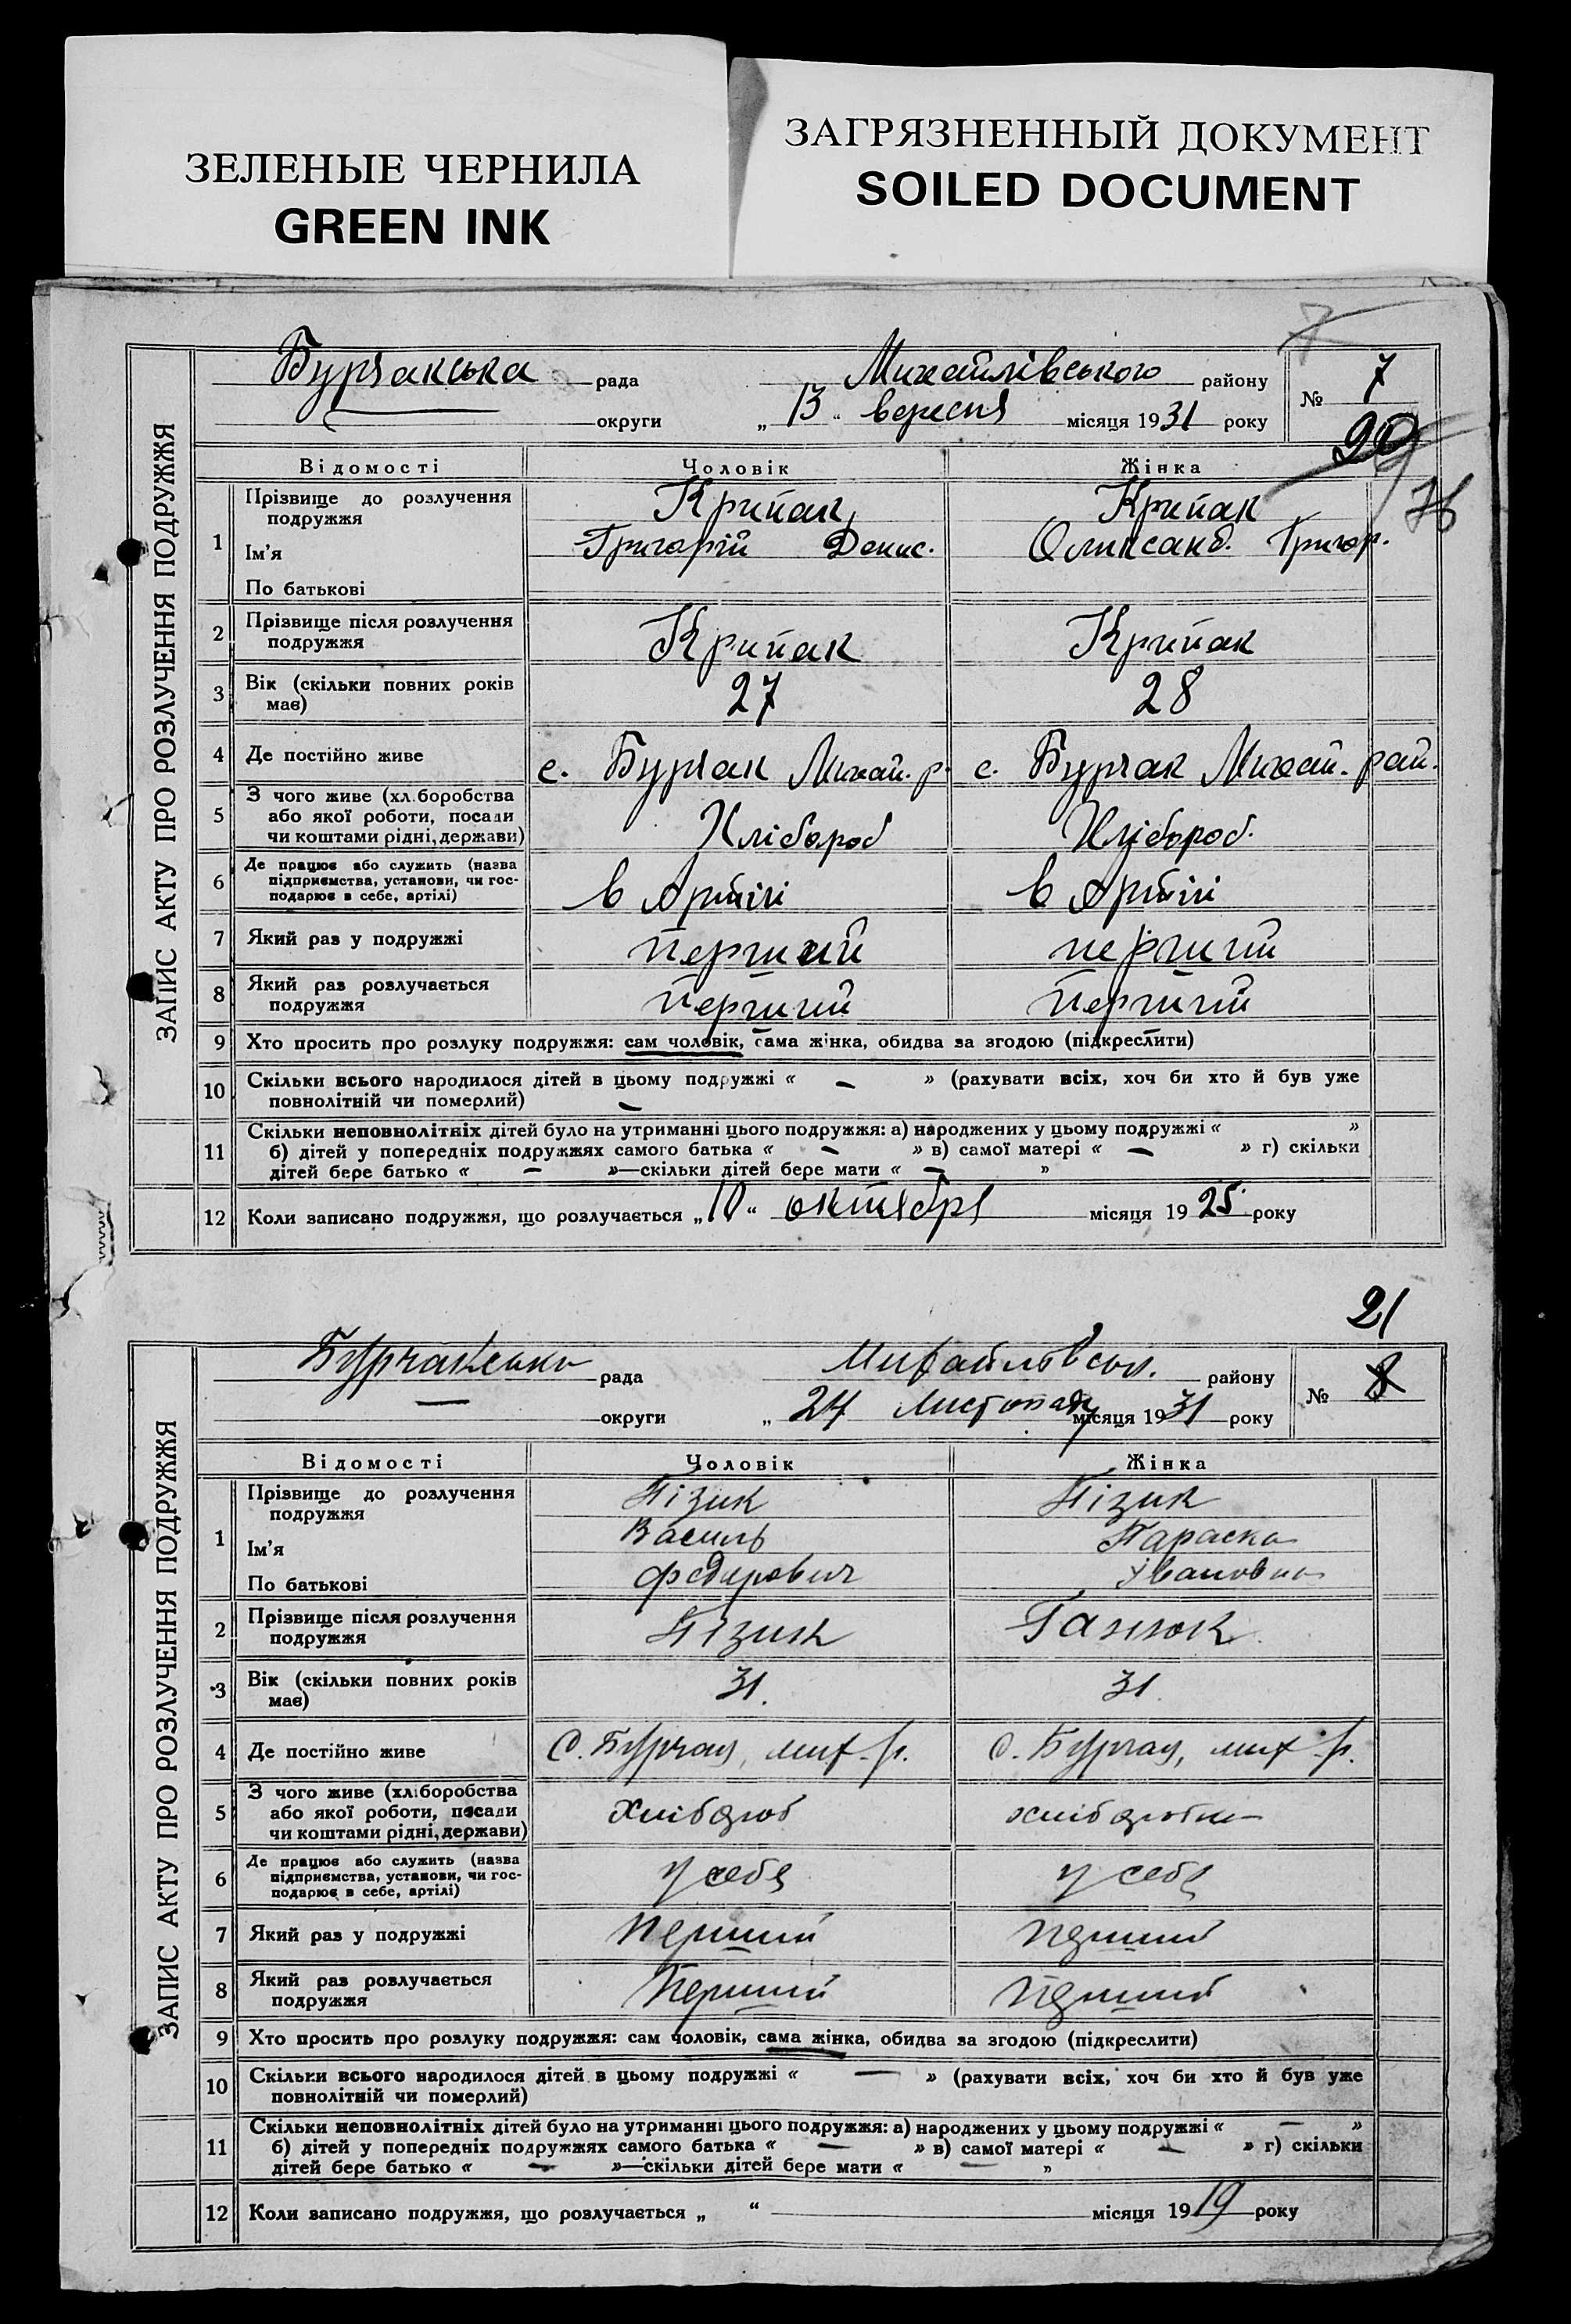 ЗЕЛЕНЫЕ ЧЕРНИЛА
GREEN INK
ЗАГРЯЗНЕННЫЙ ДОКУМЕНТ
SOILED DOCUMENT
7
ЗАПИС АКТУ ПРО РОЗЛУЧЕННЯ ПОДРУЖЖЯ
Бурчакська рада Михайлівського району № 7
округи „ 13 “ вересня місяця 1931 року
20
76
Відомості Чоловік Жінка
1 Прізвище до розлучення подружжя Крипак Крипак
Ім’я Григорій Денис. Олександ. Григор.
По батькові
2 Прізвище після розлучення подружжя Крипак Крипак
3 Вік (скільки повних років має) 27 28
4 Де постійно живе с. Бурчак Михай. р. с. Бурчак Михай. рай.
5 З чого живе (хл.боробства або якої роботи, посади чи коштами рідні, держави) Хлібороб Хлібороб.
6 Де працює або служить (назва підприємства, установи, чи господарює в себе, артілі) в Артілі в Артілі
7 Який раз у подружжі перший перший
8 Який раз розлучається подружжя перший перший
9 Хто просить про розлуку подружжя: сам чоловік, сама жінка, обидва за згодою (підкреслити)
10 Скільки всього народилося дітей в цьому подружжі « — » (рахувати всіх, хоч би хто й був уже
повнолітній чи померлий) —
11 Скільки неповнолітніх дітей було на утриманні цього подружжя: а) народжених у цьому подружжі « »
б) дітей у попередніх подружжях самого батька « — » в) самої матері « — » г) скільки
дітей бере батько « — »—скільки дітей бере мати « — »
12 Коли записано подружжя, що розлучається „ 10 “ октября місяця 1925 року
21
ЗАПИС АКТУ ПРО РОЗЛУЧЕННЯ ПОДРУЖЖЯ
Бурчакська рада Михайлівськ. району № 8
округи „ 24 Листопаду місяця 1931 року
Відомості Чоловік Жінка
1 Прізвище до розлучення подружжя Пізик Пізик
Ім’я Василь Параска
По батькові Федорович Івановна
2 Прізвище після розлучення подружжя Пізик
3 Вік (скільки повних років має) 31. 31.
4 Де постійно живе с. Бурчак, мих. р. с. Бурчак, мих. р.
5 З чого живе (хл.боробства або якої роботи, посади чи коштами рідні, держави) хлібороб хліборобка
6 Де працює або служить (назва підприємства, установи, чи господарює в себе, артілі) у себе у себе
7 Який раз у подружжі перший перший
8 Який раз розлучається подружжя перший перший
9 Хто просить про розлуку подружжя: сам чоловік, сама жінка, обидва за згодою (підкреслити)
10 Скільки всього народилося дітей в цьому подружжі « — » (рахувати всіх, хоч би хто й був уже
повнолітній чи померлий)
11 Скільки неповнолітніх дітей було на утриманні цього подружжя: а) народжених у цьому подружжі « — »
б) дітей у попередніх подружжях самого батька « — » в) самої матері « — » г) скільки
дітей бере батько « — »—скільки дітей бере мати « — »
12 Коли записано подружжя, що розлучається „ “ місяця 1919 року